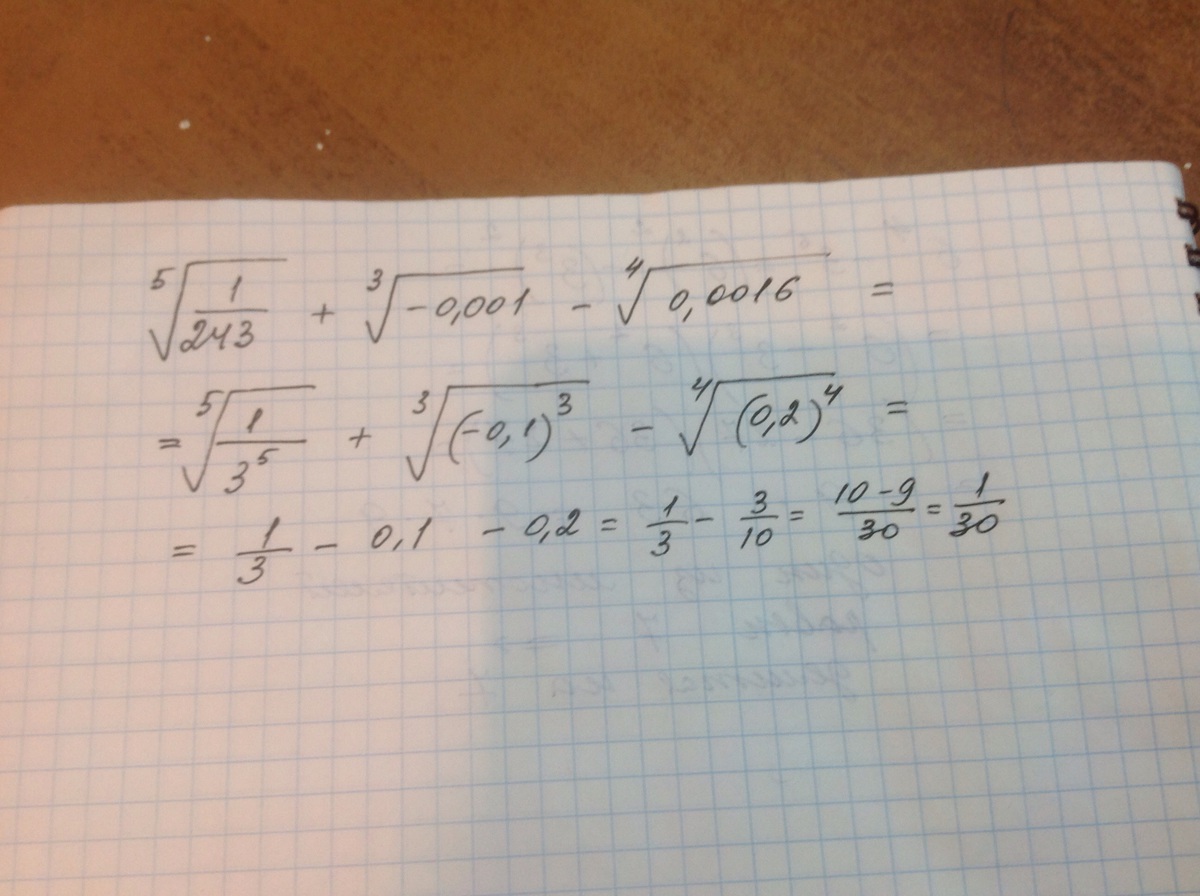 ⁵√(1/243) + ³√(-0,001) - ⁴√(0,0016) =
= ⁵√(1/3⁵) + ³√((-0,1)³) - ⁴√((0,2)⁴) =
= 1/3 - 0,1 - 0,2 = 1/3 - 3/10 = (10-9)/30 = 1/30